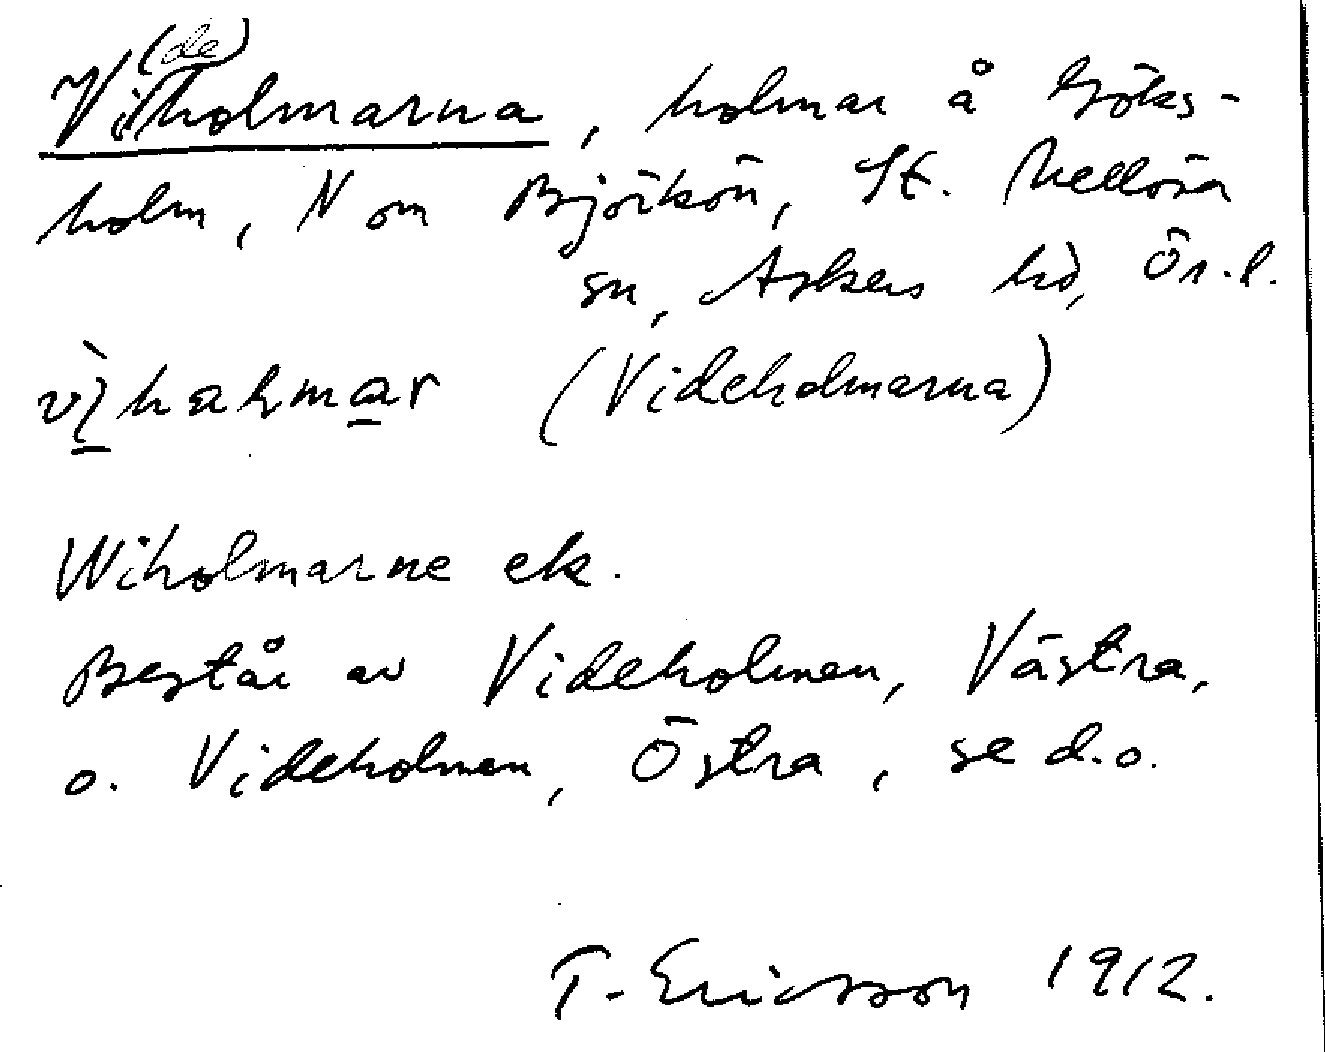 Vi(de)holmarna, holmar å Göks-
holm, N om Björkön, St. Mellösa
sn, Askers hd, Ör. l.
vì̱halmar (Videholmarna)
Wiholmarne ek.
Består av Videholmen, Västra,
o. Videholmen, Östra, se d.o.
T. Ericsson 1912.